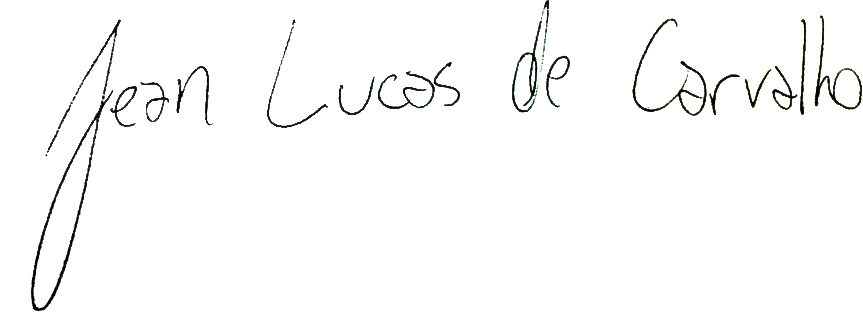 Jean Lucas de Carvalho